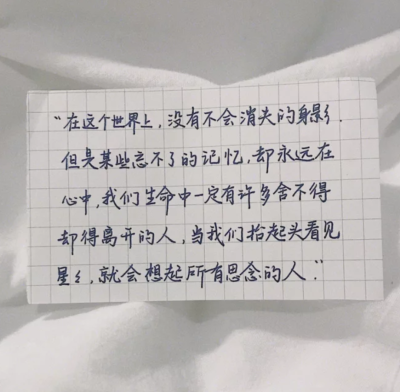 “在这个世界上，没有不会消失的身影.
但是某些忘不了的记忆，却永远在
心中，我们生命中一定有许多舍不得
却得离开的人，当我们抬起头看见
星星，就会想起所有思念的人.”